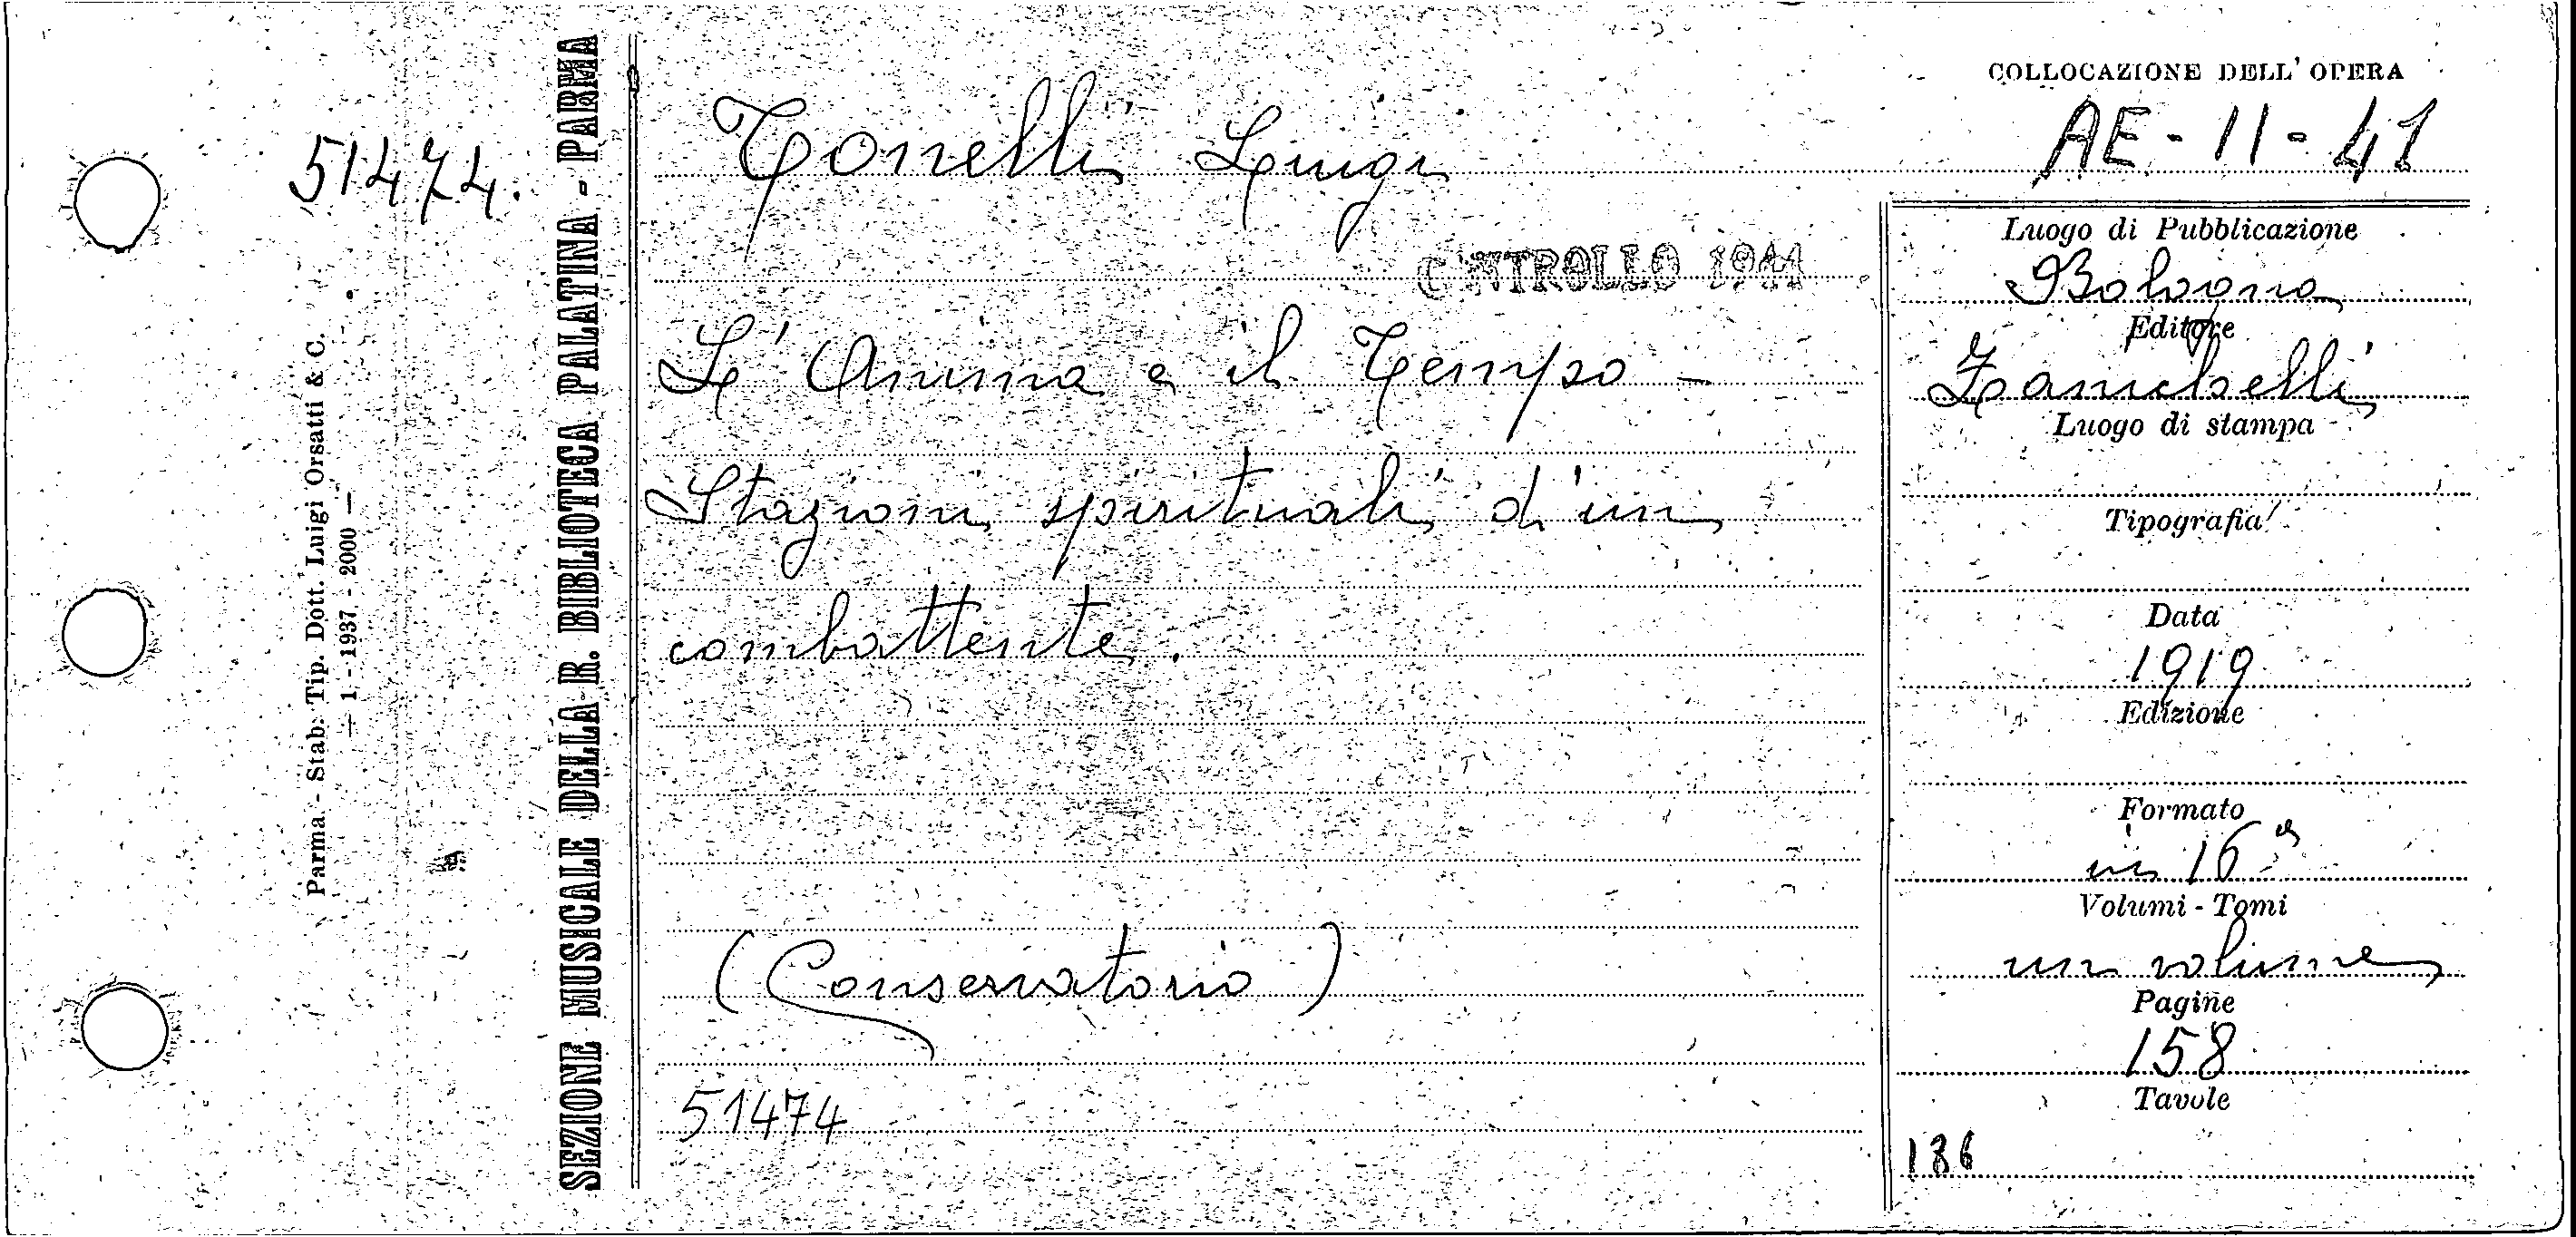 51474.
Parma - Stab. Tip. Dott. Luigi Orsatti & C.
— 1 - 1937 - 2000 —
SEZIONE MUSICALE DELLA R. BIBLIOTECA PALATINA - PARMA
Tonelli Luigi
CONTROLLO 1941
L'Anima e il Tempo -
Stazioni spirituali d'un
combattente.
(Conservatorio)
51474
COLLOCAZIONE DELL'OPERA
AE-11-41
Luogo di Pubblicazione
Bologna
Editore
Zanichelli
Luogo di stampa
Tipografia
Data
1919
Edizione
Formato
in 16°
Volumi - Tomi
un volume
Pagine
158
Tavole
186